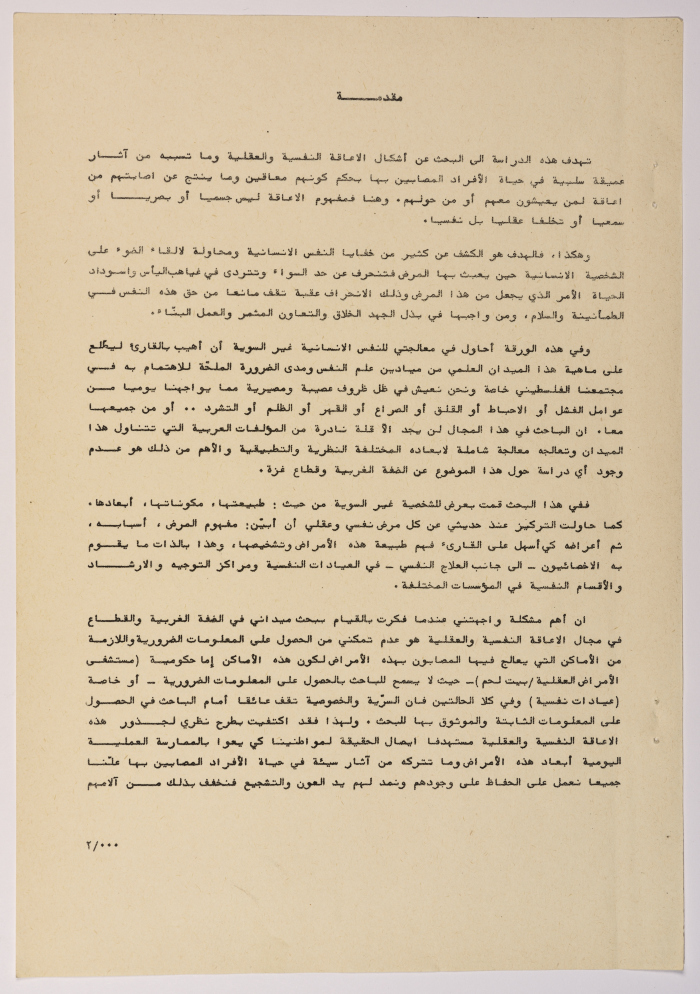 مقدمـــــة
تهدف هذه الدراسة الى البحث عن أشكال الاعاقة النفسية والعقلية وما تسببه من آثـــار
عميقة سلبية في حياة الأفراد المصابين بها بحكم كونهم معاقين وما ينتج عن اصابتهم من
اعاقة لمن يعيشون معهم أو من حولهم. وهنا فمفهوم الاعاقة ليس جسميا أو بصريـــا أو
سمعيا أو تخلفا عقليا بل نفسيا.
وهكذا، فالهدف هو الكشف عن كثير من خفايا النفس الانسانية ومحاولة لالقاء الضوء على
الشخصية الانسانية حين يعبث بها المرض فتنحرف عن حد السواء وتتردى في غياهب اليأس واسوداد
الحياة الأمر الذي يجعل من هذا المرض وذلك الانحراف عقبة تقف مانعا من حق هذه النفس فـــي
الطمأنينة والسلام، ومن واجبها في بذل الجهد الخلاق والتعاون المثمر والعمل البنّاء.
وفي هذه الورقة أحاول في معالجتي للنفس الانسانية غير السوية أن أهيب بالقارئ ليطّلع
على ماهية هذا الميدان العلمي من ميادين علم النفس ومدى الضرورة الملحّة للاهتمام به فـــي
مجتمعنا الفلسطيني خاصة ونحن نعيش في ظل ظروف عصيبة ومصيرية مما يواجهنا يوميا مـــن
عوامل الفشل أو الاحباط أو القلق أو الصراع أو القهر أو الظلم أو التشرد .. أو من جميعهـا
معا. ان الباحث في هذا المجال لن يجد الا قلة نادرة من المؤلفات العربية التي تتناول هذا
الميدان وتعالجه معالجة شاملة لابعاده المختلفة النظرية والتطبيقية والأهم من ذلك هو عـــدم
وجود أي دراسة حول هذا الموضوع عن الضفة الغربية وقطاع غزة.
ففي هذا البحث قمت بعرض للشخصية غير السوية من حيث : طبيعتها، مكوناتها، أبعادها.
كما حاولت التركيز عند حديثي عن كل مرض نفسي وعقلي أن أبيّن: مفهوم المرض، أسبابـــه،
ثم أعراضه كي أسهل على القارىء فهم طبيعة هذه الأمراض وتشخيصها، وهذا بالذات ما يقـــوم
به الاخصائيون ــ الى جانب العلاج النفسي ــ في العيادات النفسية ومراكز التوجيه والارشـــاد
والأقسام النفسية في المؤسسات المختلفة.
ان أهم مشكلة واجهتني عندما فكرت بالقيام ببحث ميداني في الضفة الغربية والقطـــاع
في مجال الاعاقة النفسية والعقلية هو عدم تمكني من الحصول على المعلومات الضرورية واللازمة
من الأماكن التي يعالج فيها المصابون بهذه الأمراض لكون هذه الأماكن إما حكومية (مستشفى
الأمراض العقلية/بيت لحم) ــ حيث لا يسمح للباحث بالحصول على المعلومات الضرورية ــ أو خاصة
(عيادات نفسية) وفي كلا الحالتين فان السرّية والخصوصية تقف عائقا أمام الباحث في الحصـول
على المعلومات الثابتة والموثوق بها للبحث. ولهذا فقد اكتفيت بطرح نظري لجــذور هذه
الاعاقة النفسية والعقلية مستهدفا ايصال الحقيقة لمواطنينا كي يعوا بالممارسة العمليـــة
اليومية أبعاد هذه الأمراض وما تتركه من آثار سيئة في حياة الأفراد المصابين بها علّنـــا
جميعا نعمل على الحفاظ على وجودهم ونمد لهم يد العون والتشجيع فنخفف بذلك مـــن آلامهم
٢/٠٠٠